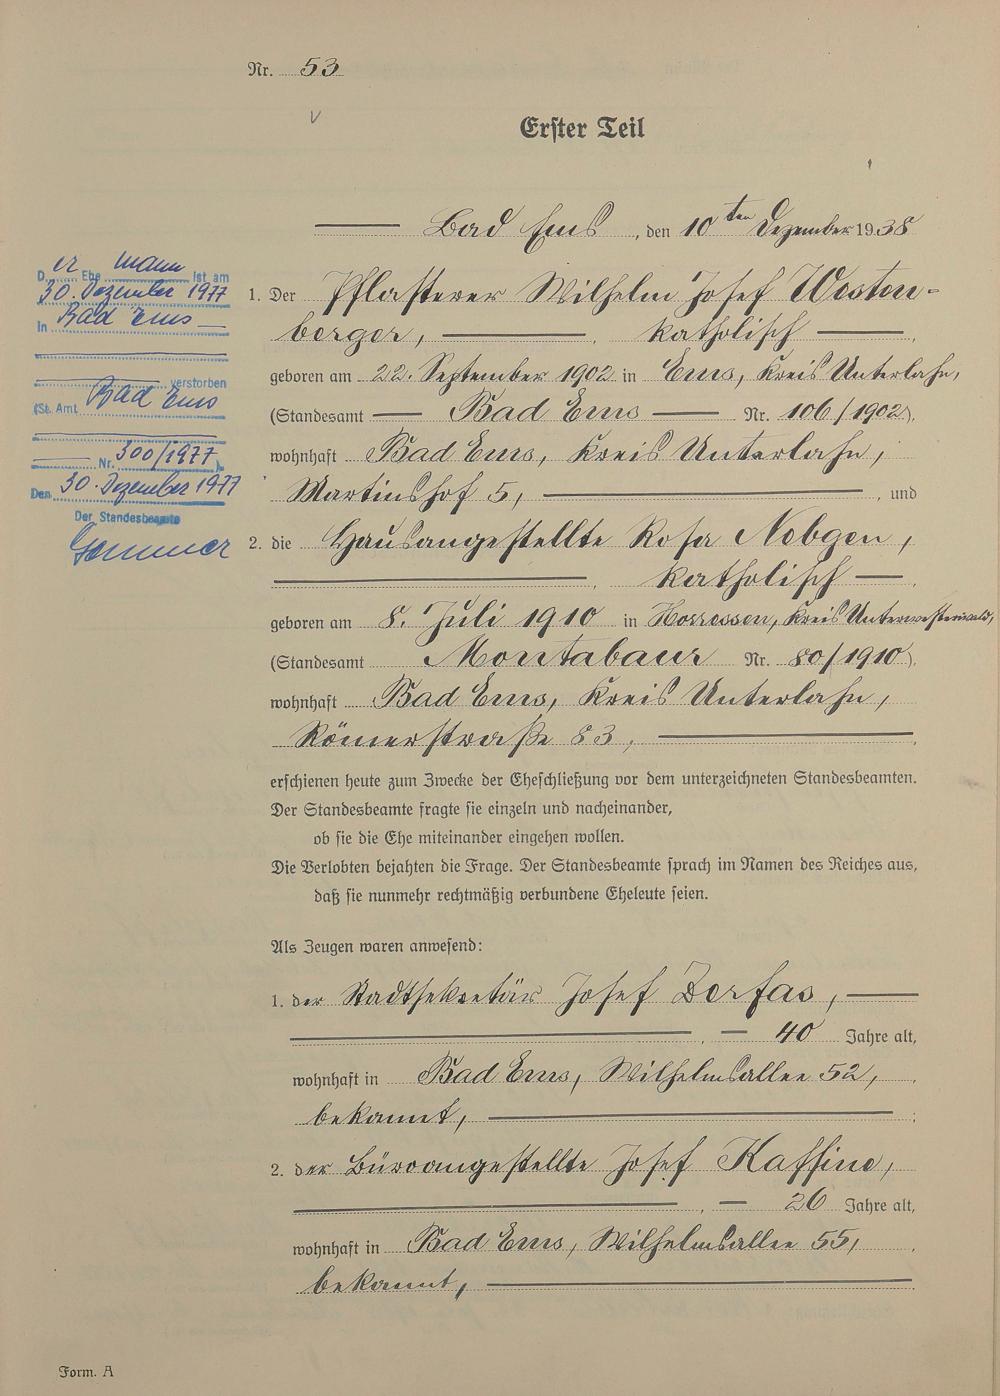 Nr. 53
Erster Teil
Bad Ems, den 10ten Dezember 1938
1. Der Pflasterer Wilhelm Josef Westen-
berger, katholisch,
geboren am 22. September 1902 in Ems, Kreis Unterlahn,
(Standesamt Bad Ems Nr. 106/1902),
wohnhaft Bad Ems, Kreis Unterlahn,
Martinshof 5, und
2. die Hausangestellte Rosa Nebgen,
katholisch,
geboren am 8. Juli 1910 in Horressen, Kreis Unterwesterwald,
(Standesamt Montabaur Nr. 80/1910),
wohnhaft Bad Ems, Kreis Unterlahn,
Römerstraße 83,
erschienen heute zum Zwecke der Eheschließung vor dem unterzeichneten Standesbeamten.
Der Standesbeamte fragte sie einzeln und nacheinander,
ob sie die Ehe miteinander eingehen wollen.
Die Verlobten bejahten die Frage. Der Standesbeamte sprach im Namen des Reiches aus,
daß sie nunmehr rechtmäßig verbundene Eheleute seien.
Als Zeugen waren anwesend:
1. der Stadtsekretär Josef Zerfas,
40 Jahre alt,
wohnhaft in Bad Ems, Wilhelmsallee 52,
bekannt,
2. der Büroangestellte Josef Kaffine,
26 Jahre alt,
wohnhaft in Bad Ems, Wilhelmsallee 55,
bekannt,
Form. A
Der Ehemann ist am
30. Dezember 1977
in Bad Ems
verstorben
(St. Amt Bad Ems
Nr. 300/1977).
Den 30. Dezember 1977
Der Standesbeamte